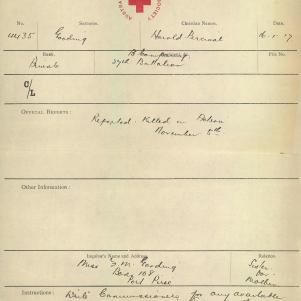 No. Surname. Christian Names. Date.
1435 Gooding Harold Percival 16.1.17
Rank. File No.
Private B Company
37th Battalion
C/L
OFFICIAL REPORTS:
Reported. Killed in Action
November 5th.
Other Information:
Inquirer's Name and Address. Relation.
Miss S. M. Gooding Sister
Box 108 for
Port Pirie Mother
Instructions: Write Commissioners for any available